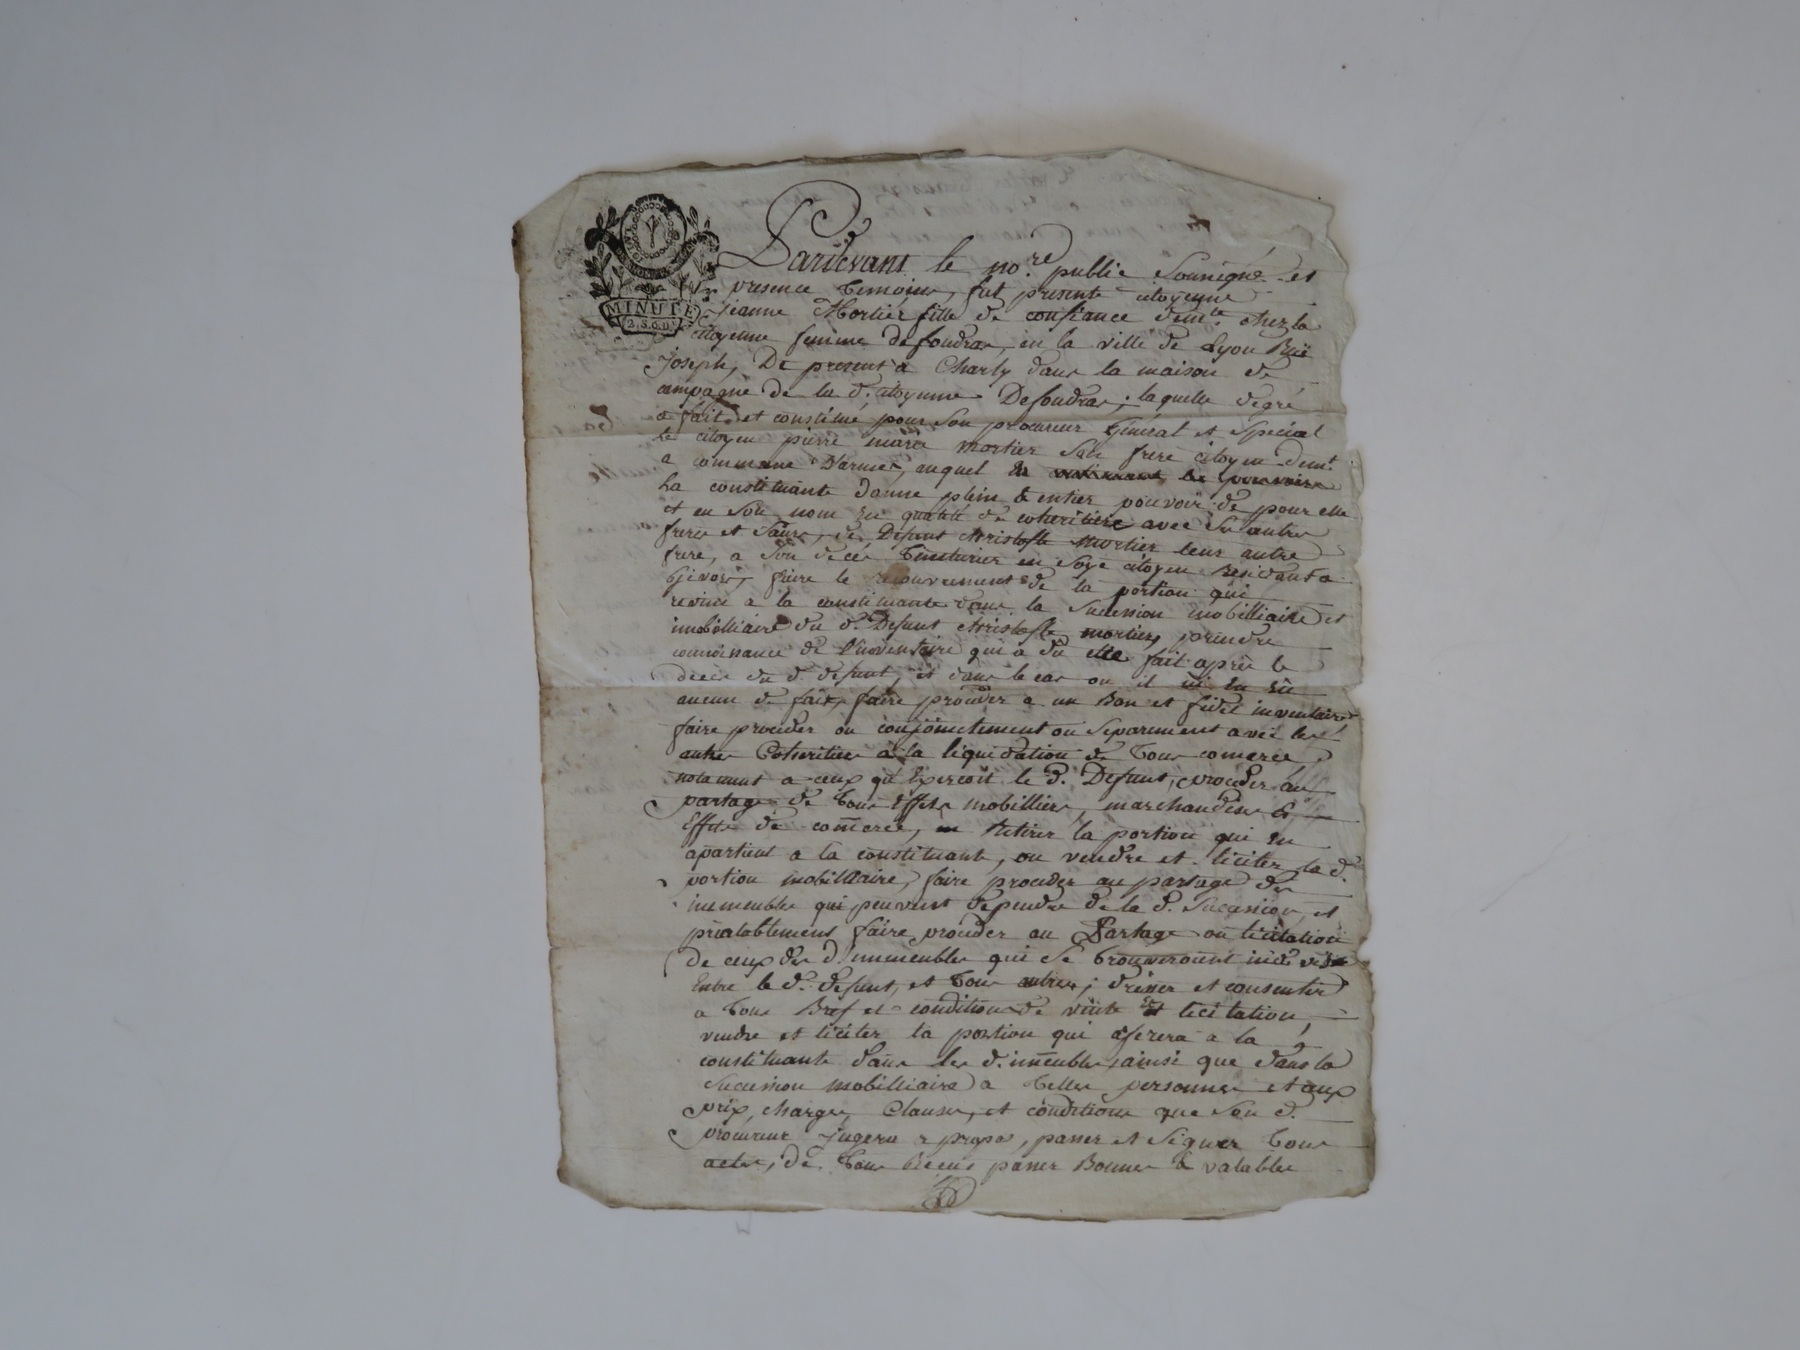 MINUTE
2. S. 6. D.
Pardevant le no.re public Sousigné et
presence Temoins, fut presente citoyenne
jeanne Mortier fille de confiance demte. chez la
citoyenne femme defoudras, en la ville de Lyon Ruë
joseph, De present a Charly dans la maison de
campagne de la d. citoyenne Defoudras; laquelle degré
a fait et constitué pour Son procureur Général et Special
le citoyen pierre marie mortier Son frere citoyen demt.
a commune auquel
La constituante donne plein & entier pouvoir de pour elle
et en Son nom En qualité de coheritiere avec Ses autres
freres et Sœurs, de Defunt christofle Mortier leur autre
frere, a Son decès Teinturier en Soye citoyen Residant a
Givors, faire le recouvrement de la portion qui
revient a la constituante dans la Sucession mobilliaire et
imobilliaire du d. Defunt christofle mortier, prendre
connoissance de l'inventaire qui a du etre fait après le
décès du d. defunt, et dans le cas ou il ni En Eu
aucun de fait, faire proceder a un Bon et fidel inventaire
faire proceder ou conjoinctement ou Separement avec les
autres Coheritiers a la liquidation de Tous comerce
notament a ceux qu'Exercoit le d. Defunt, proceder au
partage de Tous Effets mobilliers, marchandises &
Effets de comerce, en Retirer la portion qui En
apartient a la constituante, ou vendre et liciter la d.
portion mobilliaire, faire proceder au partage des
immeubles qui peuvent dependre de la d. Sucession, et
préalablement faire proceder au Partage ou licitation
de ceux des d. immeubles qui Se Trouveroient indivis
Entre le d. defunt, et Tous autres; dresser et consentir
a Tous Bref et conditions de vente et licitation,
vendre et liciter la portion qui aferera a la
constituante dans les d. immeubles ainsi que dans la
Sucession mobilliaire a Telles personnes et aux
prix, charges, Clauses, et conditions que Son d.
procureur jugera a propos, passer et Signer Tous
actes, de Tous Recus passer Bonnes & valables